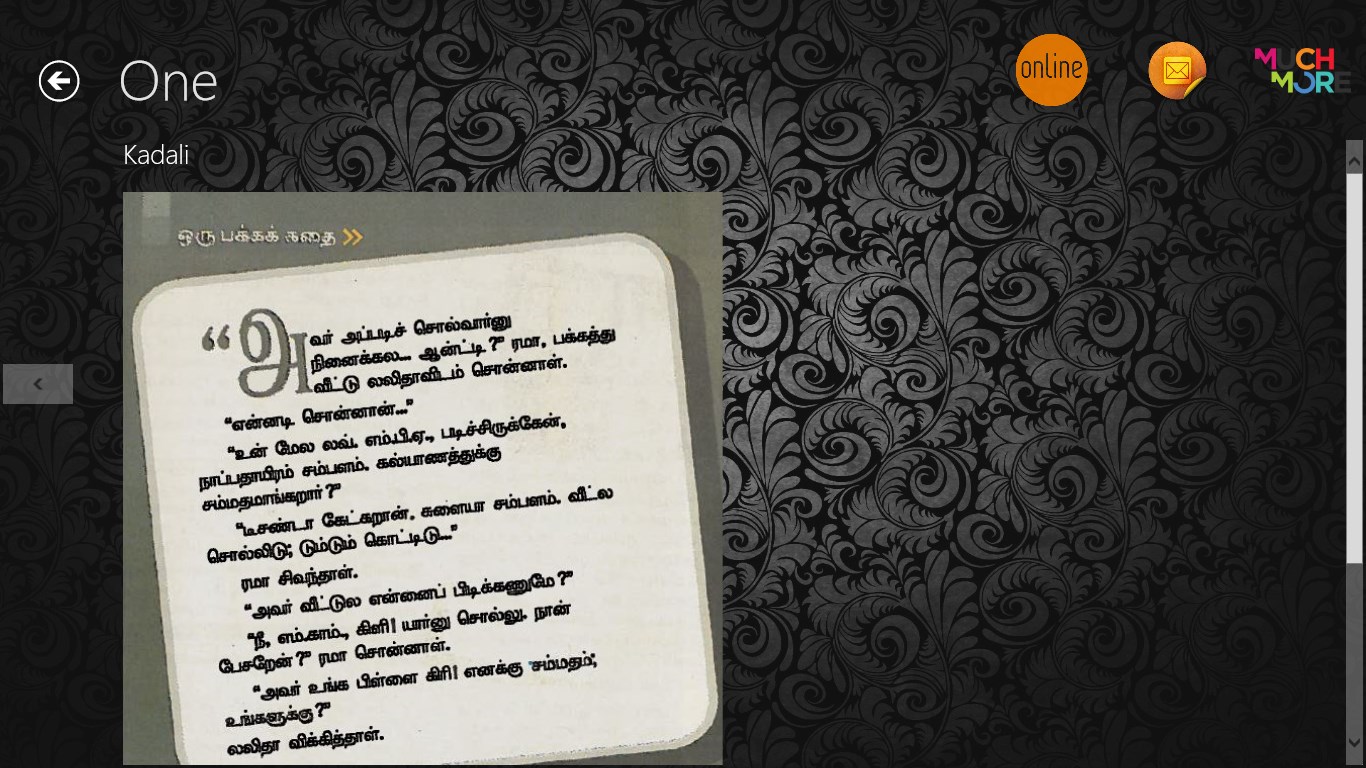 One
online
MUCH
MORE
Kadali
ஒரு பக்கக் கதை
“அவர் அப்படிச் சொல்வார்னு
நினைக்கல... ஆன்ட்டி?” ரமா, பக்கத்து
வீட்டு லலிதாவிடம் சொன்னாள்.
“என்னடி சொன்னான்...”
“உன் மேல லவ். எம்.பி.ஏ., படிச்சிருக்கேன்,
நாட்பதாயிரம் சம்பளம். கல்யாணத்துக்கு
சம்மதமாங்கறார்?”
“டீசண்டா கேட்கறான். களையா சம்பளம். வீட்ல
சொல்லிடு; டும்டும் கொட்டிடு...”
ரமா சிவந்தாள்.
“அவர் வீட்டுல என்னைப் பிடிக்கணுமே?”
“நீ, எம்.காம்., கிளி! யார்னு சொல்லு. நான்
பேசறேன்?” ரமா சொன்னாள்.
“அவர் உங்க பிள்ளை கிரி! எனக்கு சம்மதம்;
உங்களுக்கு?”
லலிதா விக்கித்தாள்.